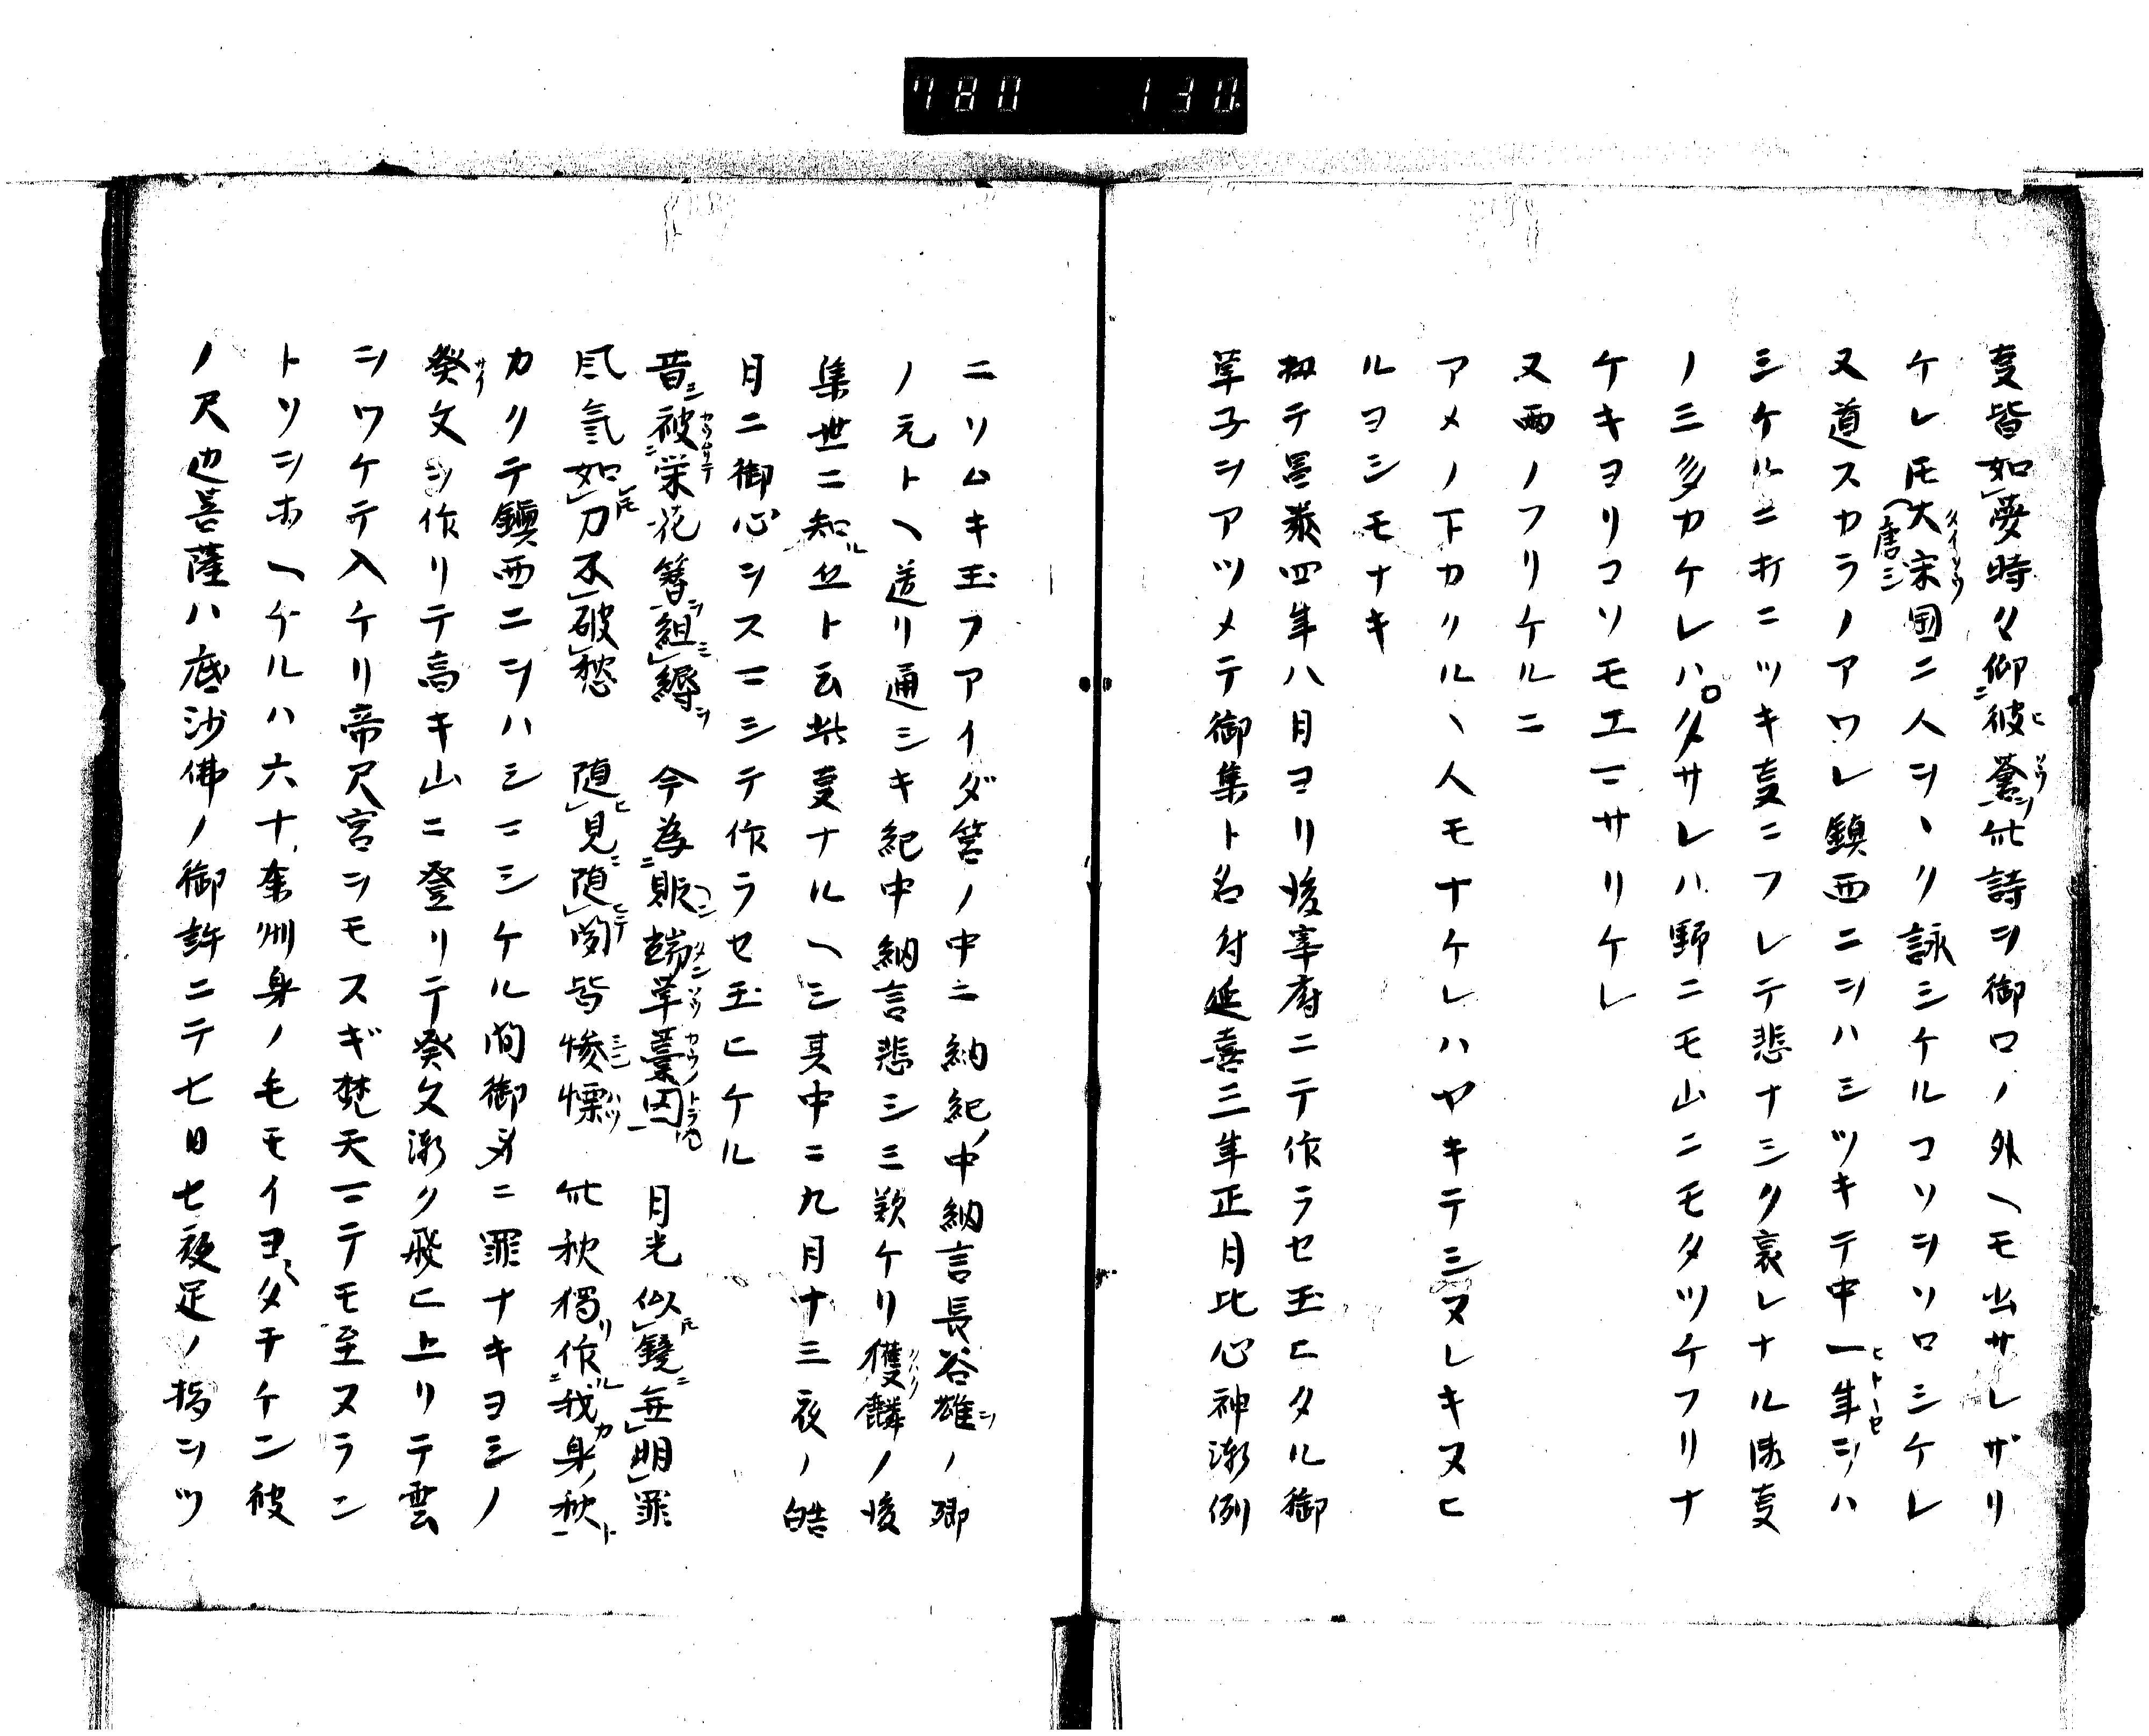 780 130
事皆如夢時々仰彼蒼此詩ヲ御口ノ外ヘモ出サレザリ
ケレ𪜈大宋国ニ人ヲヽク詠シケルコソヲソロシケレ
又道スカラノアワレ鎮西ニヲハシツキテ中一年ヲハ
シケルニ折ニツキ事ニフレテ悲ナシク哀レナル御事
ノミ多カケレハ夕サレハ野ニモ山ニモタツケフリナ
ケキヨリコソモエマサリケレ
又雨ノフリケルニ
アメノ下カクルヽ人モナケレハヤキテシヌレキヌヒ
ルヨシモナキ
扨テ昌泰四年八月ヨリ後宰府ニテ作ラセ玉ヒタル御
草子ヲアツメテ御集ト名付延喜三年正月比心神漸例
ニソムキ玉フアイダ筥ノ中ニ納紀中納言長谷雄ノ卿
ノ元トヘ送リ通シキ紀中納言悲シミ歎ケリ獲麟ノ後
集世ニ知ル丘ト云此事ナルヘシ其中ニ九月十三夜ノ皓
月ニ御心ヲスマシテ作ラセ玉ヒケル
昔被栄花簪組縟 今為貶謫草藁囚 月光似鏡無明罪
風気如刀不破愁 随見随聞皆惨慄 此秋獨作我身秋
カクテ鎮西ニヲハシマシケル間御身ニ罪ナキヨシノ
祭文ヲ作リテ高キ山ニ登リテ祭文漸ク飛ヒ上リテ雲
ヲワケテ入ケリ帝尺宮ヲモスギ梵天マテモ至ヌラン
トソヲホヘケルハ六十餘州身ノ毛モイヨタチケン彼
ノ尺迦菩薩ハ底沙佛ノ御許ニテ七日七夜足ノ指ヲツ